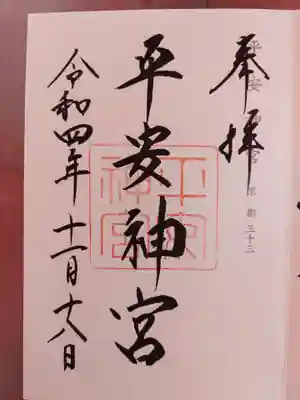 奉拝
平安神宮
平安神宮
令和四年十一月十八日
京都三十三